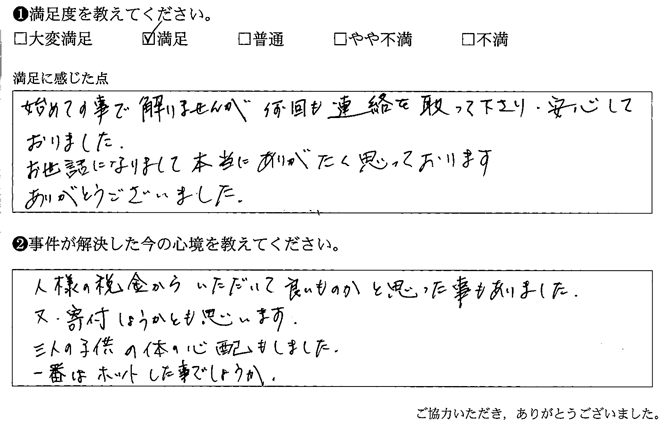 ❶満足度を教えてください。
□大変満足 ☑満足 □普通 □やや不満 □不満
満足に感じた点
始めての事で解りませんが何回も連絡を取って下さり・安心して
おりました.
お世話になりまして本当にありがたく思っております
ありがとうございました.
❷事件が解決した今の心境を教えてください。
人様の税金からいただいて良いものかと思った事もありました.
又・寄付しようかとも思います.
三人の子供の体の心配もしました.
一番はホットした事でしょうか.
ご協力いただき，ありがとうございました。